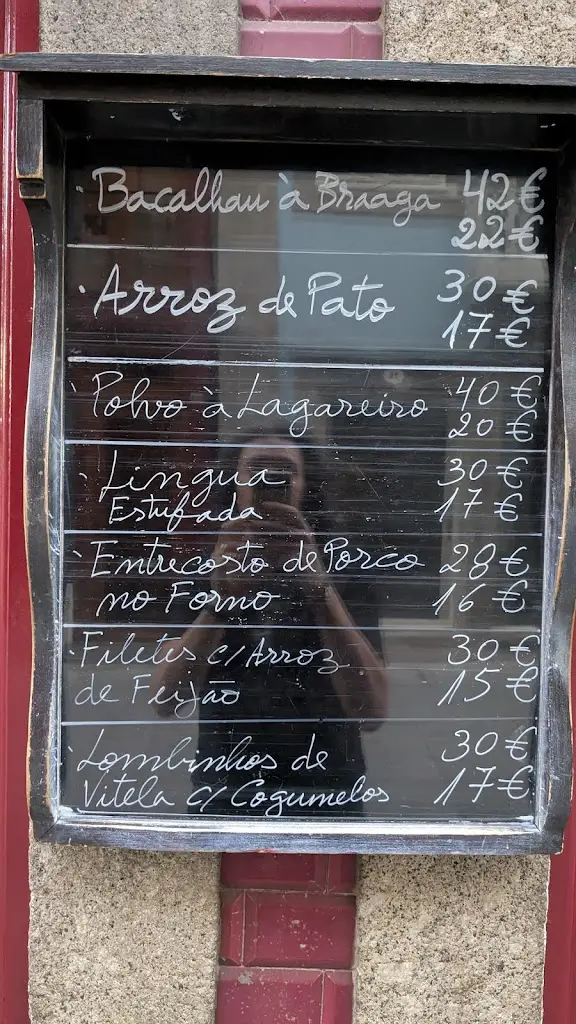 · Bacalhau à Braaga 42€
22€
· Arroz de Pato 30€
17€
· Polvo à Lagareiro 40€
20€
· Lingua 30€
Estufada 17€
· Entrecosto de Porco 28€
no Forno 16€
· Filetes c/ Arroz 30€
de Feijão 15€
· Lombinhos de 30€
Vitela c/ Cogumelos 17€